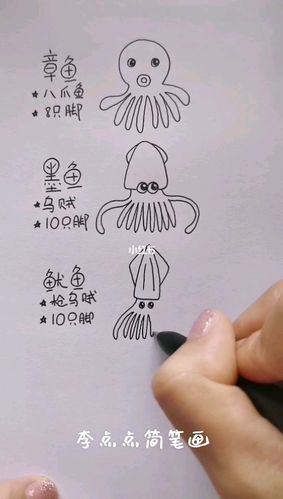 章鱼
★八爪鱼
★8只脚
墨鱼
★乌贼
★10只脚
小红书
鱿鱼
★枪乌贼
★10只脚
李点点简笔画